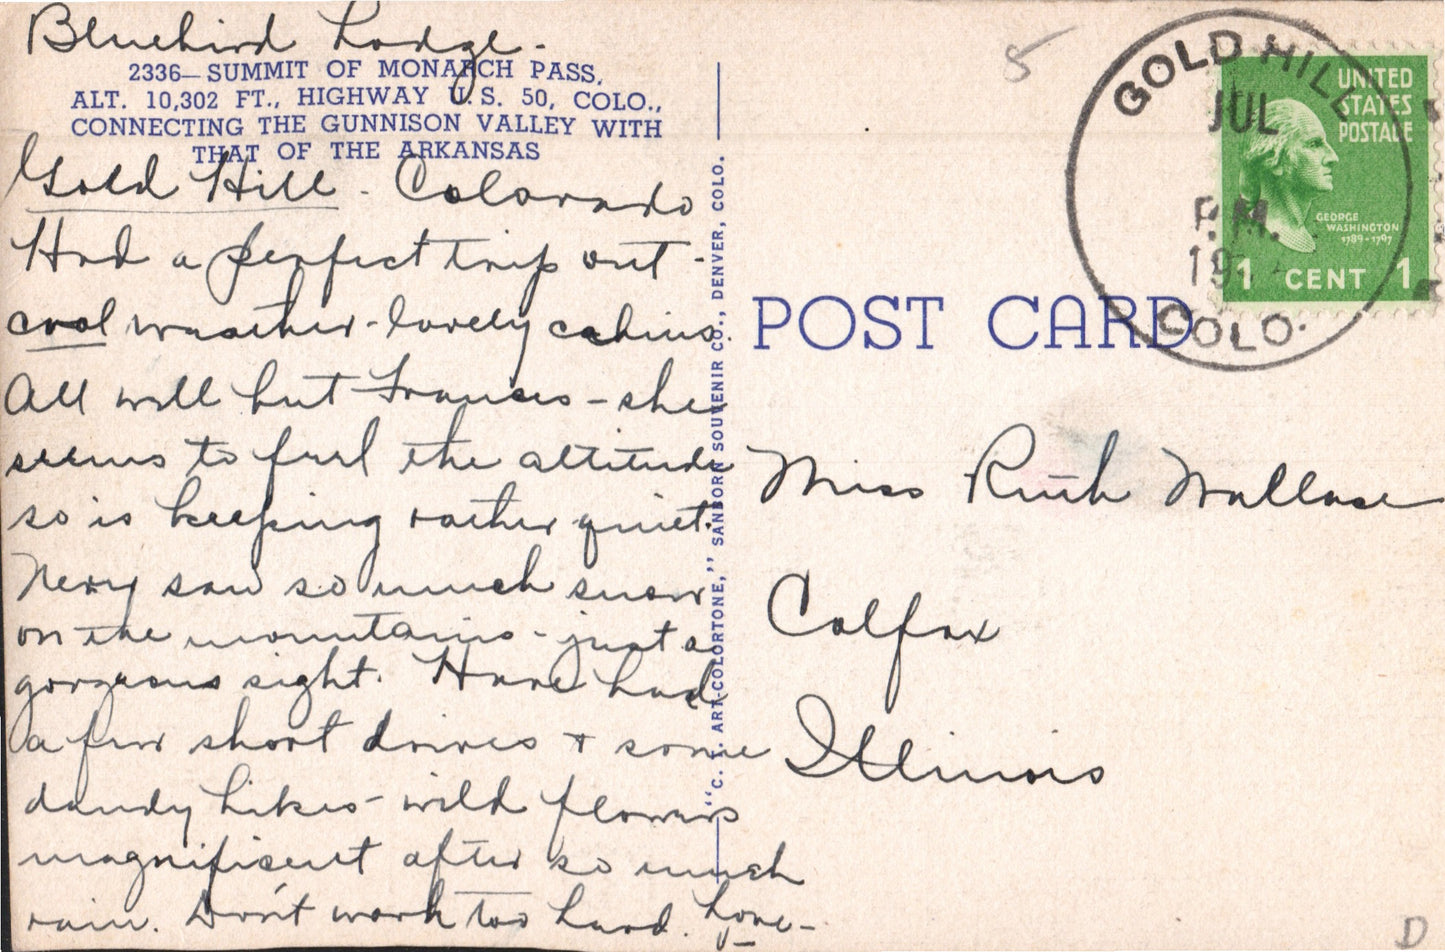 Bluebird Lodge -
2336—SUMMIT OF MONARCH PASS,
ALT. 10,302 FT., HIGHWAY U.S. 50, COLO.,
CONNECTING THE GUNNISON VALLEY WITH
THAT OF THE ARKANSAS
Gold Hill - Colorado
Had a perfect trip out -
cool weather - lovely cabins.
All well but Frances - she
seems to feel the altitude
so is keeping rather quiet.
Never saw so much snow
on the mountains - just a
gorgeous sight. Have had
a few short drives & some
dandy hikes - wild flowers
magnificent after so much
rain. Don't work too hard. Love -
"C. T. ART-COLORTONE," SANBORN SOUVENIR CO., DENVER, COLO.
5
GOLD HILL
JUL
P.M.
COLO.
UNITED
STATES
POSTAGE
GEORGE
WASHINGTON
1789-1797
1 CENT 1
POST CARD
Miss Ruth Wallace
Colfax
Illinois
D